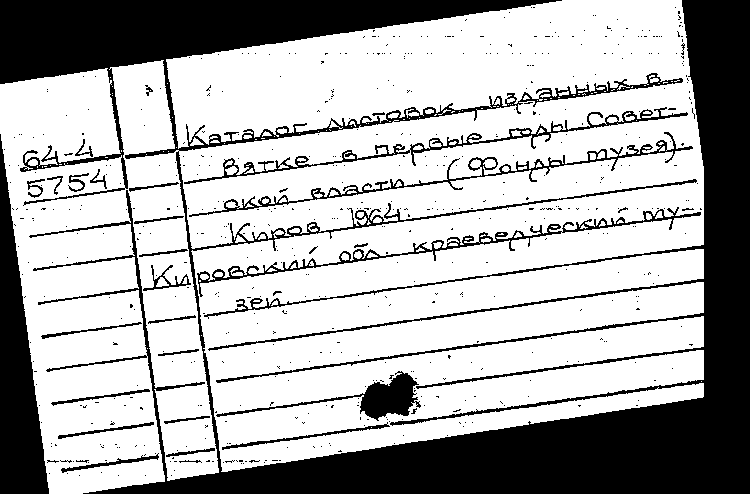 64-4
5754
Каталог листовок, изданных в
Вятке в первые годы Совет-
ской власти. (Фонды музея).
Киров, 1964.
Кировский обл. краеведческий му-
зей.